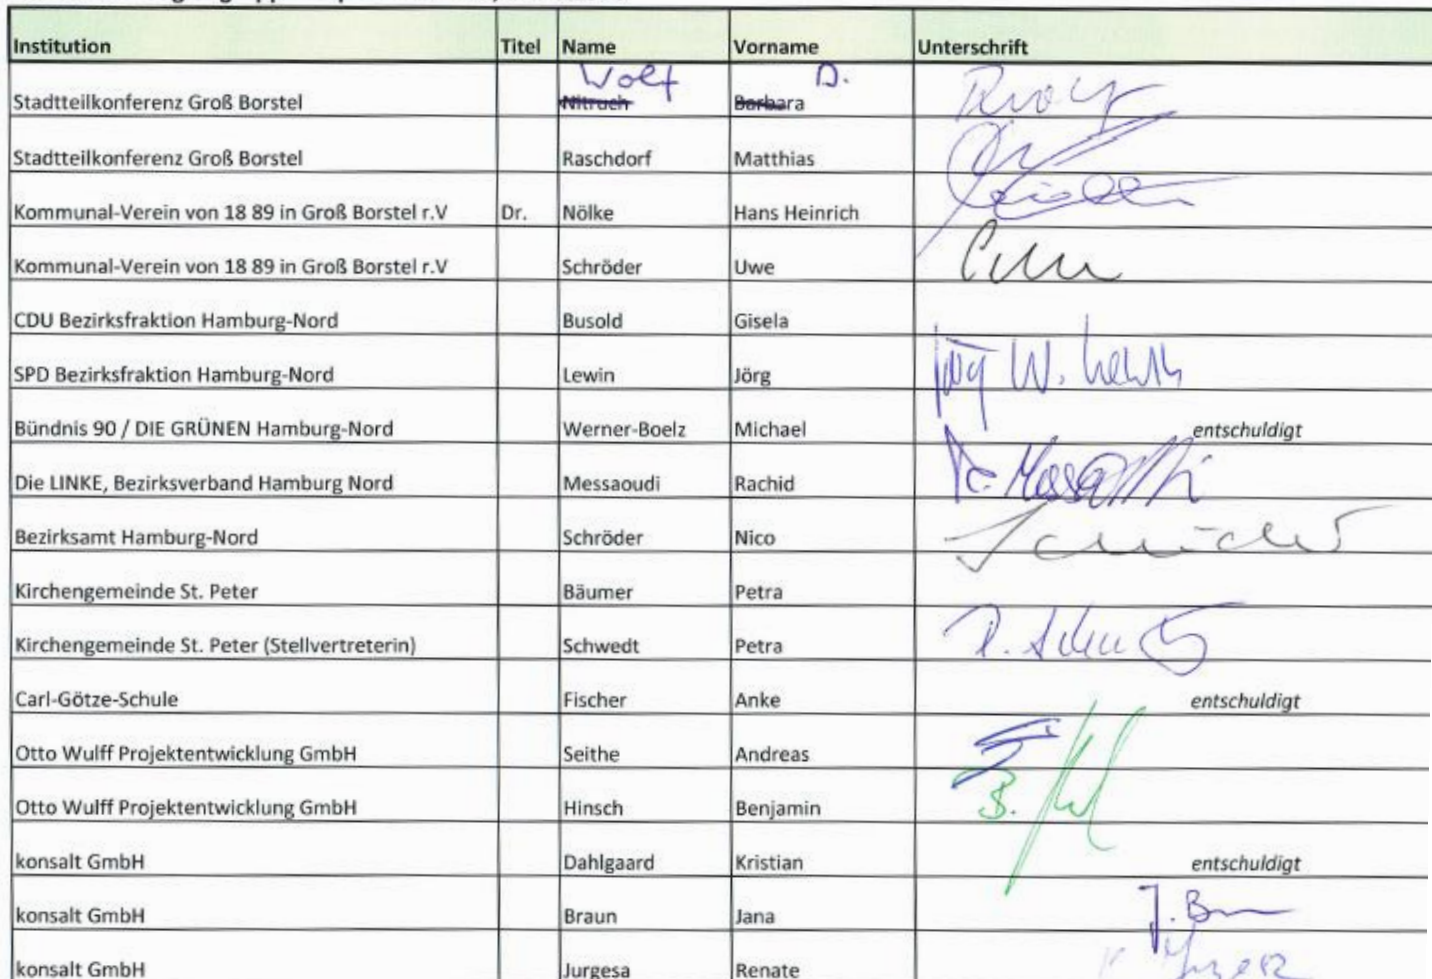 Institution Titel Name Vorname Unterschrift
Wolf D.
Stadtteilkonferenz Groß Borstel Nitruch Barbara
Stadtteilkonferenz Groß Borstel Raschdorf Matthias
Kommunal-Verein von 18 89 in Groß Borstel r.V Dr. Nölke Hans Heinrich
Kommunal-Verein von 18 89 in Groß Borstel r.V Schröder Uwe
CDU Bezirksfraktion Hamburg-Nord Busold Gisela
SPD Bezirksfraktion Hamburg-Nord Lewin Jörg Jörg W. Lewin
Bündnis 90 / DIE GRÜNEN Hamburg-Nord Werner-Boelz Michael entschuldigt
Die LINKE, Bezirksverband Hamburg Nord Messaoudi Rachid
Bezirksamt Hamburg-Nord Schröder Nico
Kirchengemeinde St. Peter Bäumer Petra
Kirchengemeinde St. Peter (Stellvertreterin) Schwedt Petra
Carl-Götze-Schule Fischer Anke entschuldigt
Otto Wulff Projektentwicklung GmbH Seithe Andreas
Otto Wulff Projektentwicklung GmbH Hinsch Benjamin
konsalt GmbH Dahlgaard Kristian entschuldigt
konsalt GmbH Braun Jana J. B
konsalt GmbH Jurgesa Renate